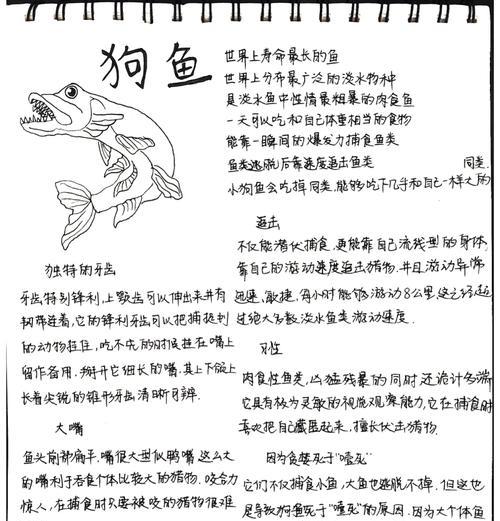 狗鱼
世界上寿命最长的鱼
世界上分布最广泛的淡水物种
是淡水鱼中性情最粗暴的肉食鱼
一天可以吃和自己体重相当的食物
能靠一瞬间的爆发力捕食鱼类
鱼类逃脱后靠速度追击鱼类
同类.
小狗鱼会吃掉同类,能够吃下几乎和自己一样大的
追击
不仅能潜伏捕食,更能靠自己流线型的身体,
靠自己的游动速度追击猎物,并且游动异常
迅速、敏捷,每小时能够游动8公里,这已经超
过绝大多数淡水鱼类游动速度.
习性
肉食性鱼类,凶猛残暴的同时还诡计多端
它具有极为灵敏的视觉观察能力,它在捕食时
喜欢把自己藏匿起来,擅长伏击猎物.
因为贪婪死于"噎死"
它们不仅捕食小鱼,大鱼也逃脱不掉.但这也
是导致狗鱼死于"噎死"的原因.因为大个体鱼
独特的牙齿
牙齿特别锋利,上颚齿可以伸出来并有
韧带连着,它的锋利牙齿可以把捕捉到
的动物挂住,吃不完的时候挂在嘴上
留作备用.掰开它细长的嘴,其上下颌上
长着尖锐的锥形牙齿清晰可辨.
大嘴
鱼头前部扁平,嘴很大型似鸭嘴,这么大
的嘴利于吞食个体比较大的猎物.咬合力
惊人,在捕食时只要被咬的猎物很难